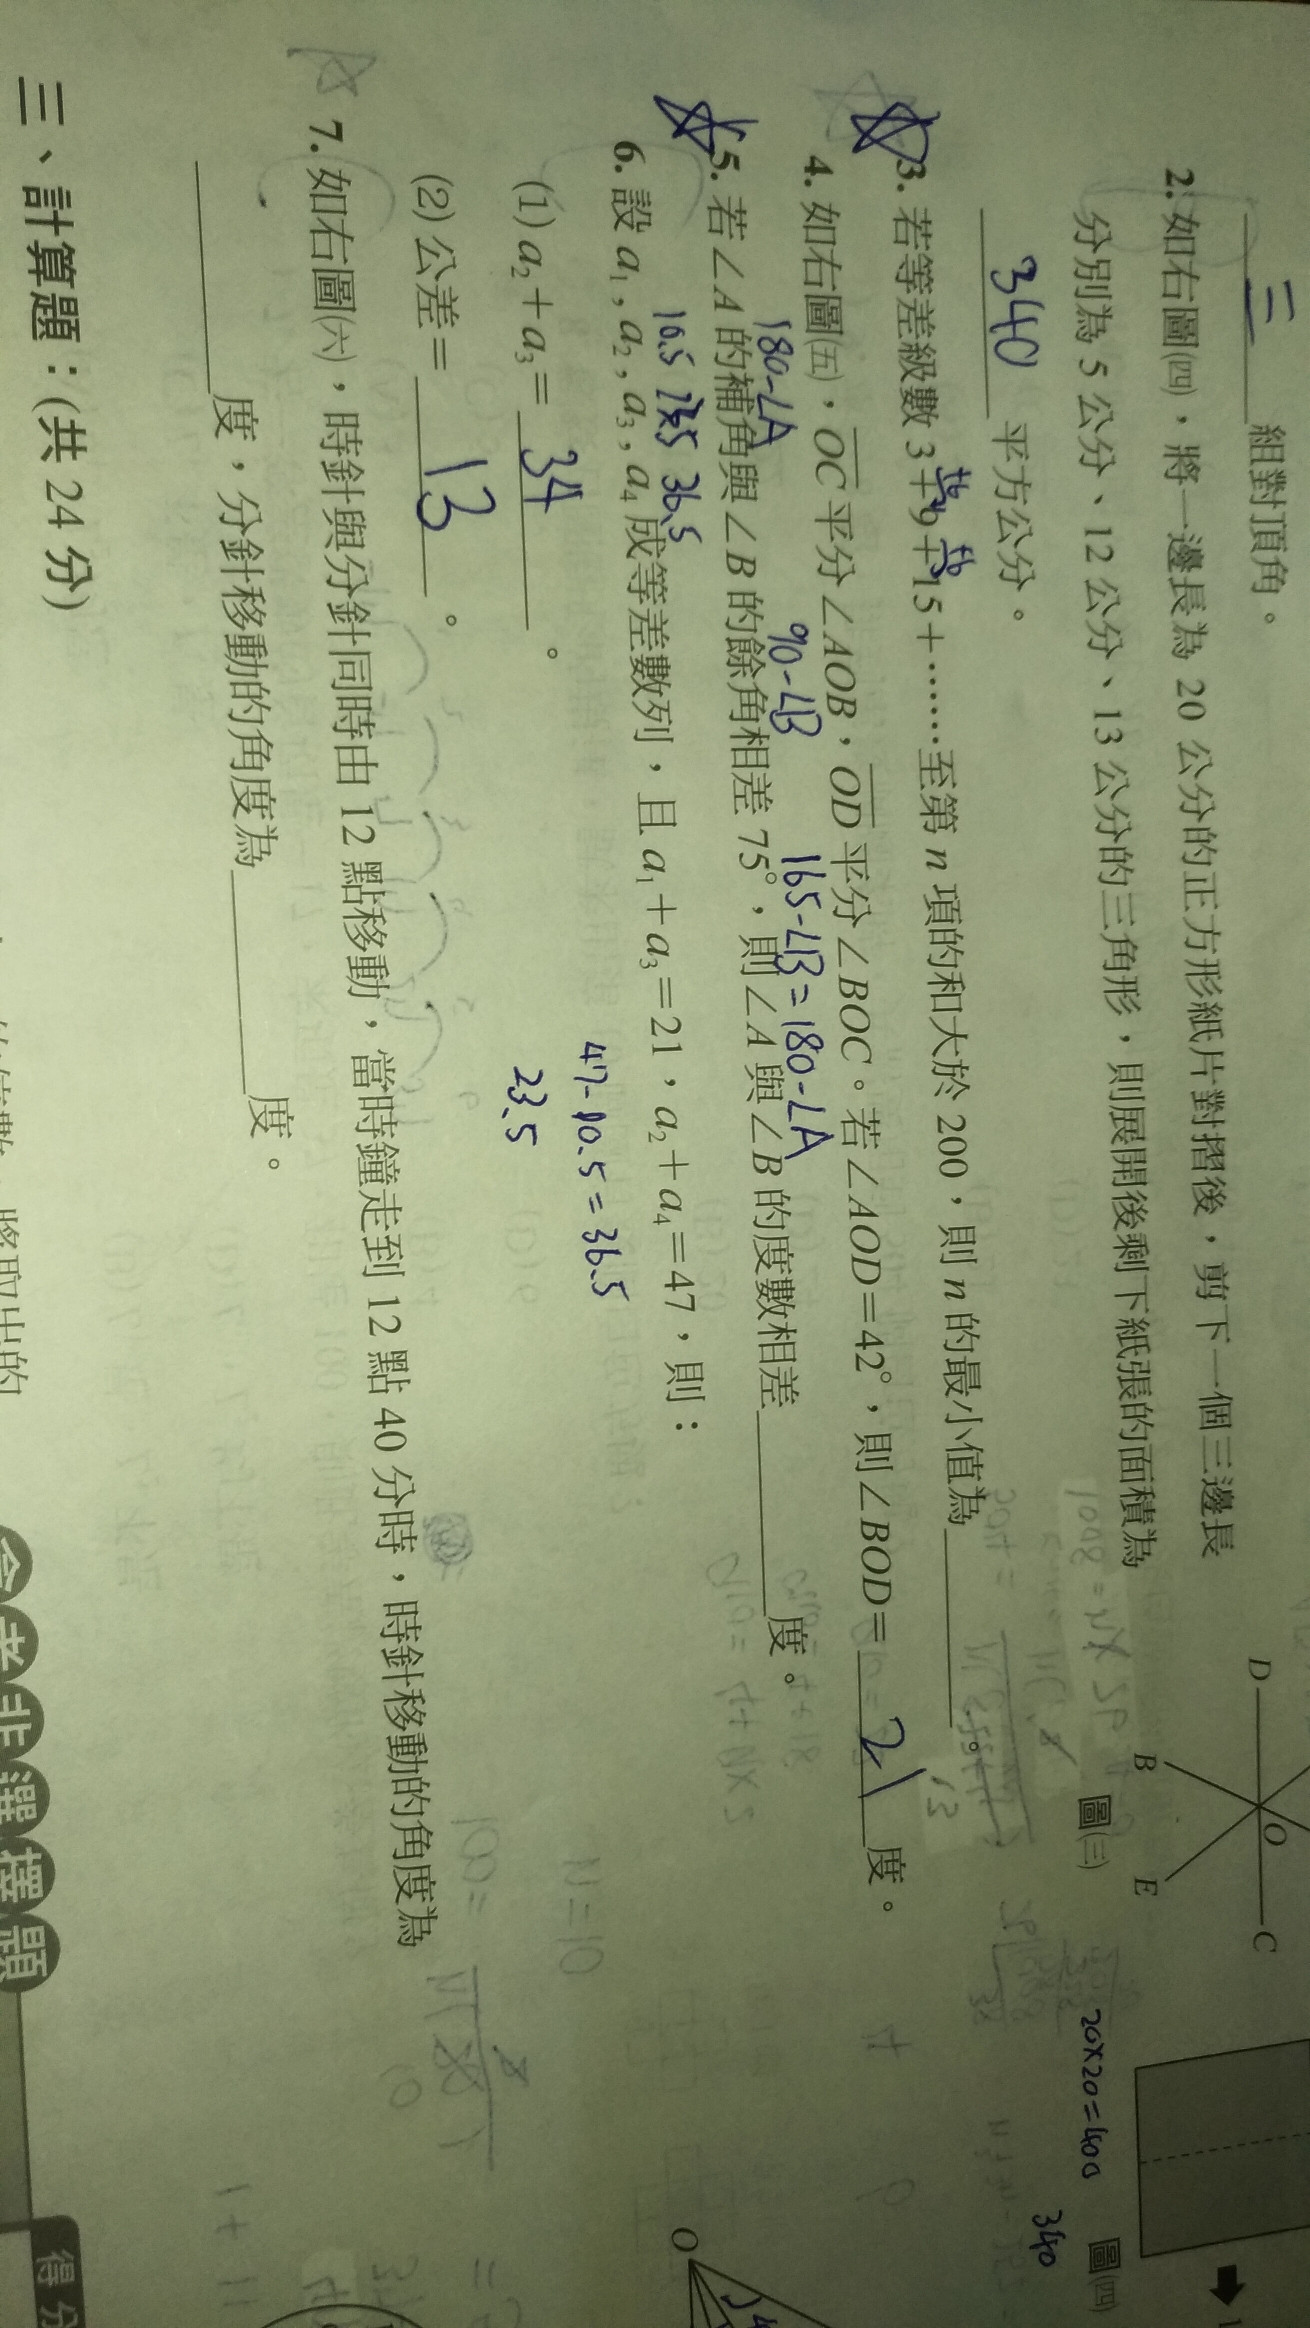 三 組對頂角。
2. 如右圖㈣，將一邊長為 20 公分的正方形紙片對摺後，剪下一個三邊長
分別為 5 公分、12 公分、13 公分的三角形，則展開後剩下紙張的面積為
340 平方公分。
D
O
C
B
E
圖㈢
20×20=400
340
圖㈣
+6 +6
3. 若等差級數 3＋9＋15＋……至第 n 項的和大於 200，則 n 的最小值為______。
4. 如右圖㈤，OC 平分∠AOB，OD 平分∠BOC。若∠AOD＝42°，則∠BOD＝ 21 度。
180-∠A 90-∠B 165-∠B=180-∠A
5. 若∠A 的補角與∠B 的餘角相差 75°，則∠A 與∠B 的度數相差______度。
10.5 23.5 36.5
6. 設 a₁，a₂，a₃，a₄ 成等差數列，且 a₁＋a₃＝21，a₂＋a₄＝47，則：
47-10.5=36.5
23.5
(1) a₂＋a₃＝ 34 。
(2) 公差＝ 13 。
O
7. 如右圖㈥，時針與分針同時由 12 點移動，當時鐘走到 12 點 40 分時，時針移動的角度為
______度，分針移動的角度為______度。
三、計算題：(共 24 分)
會考非選擇題
得分
將取出的